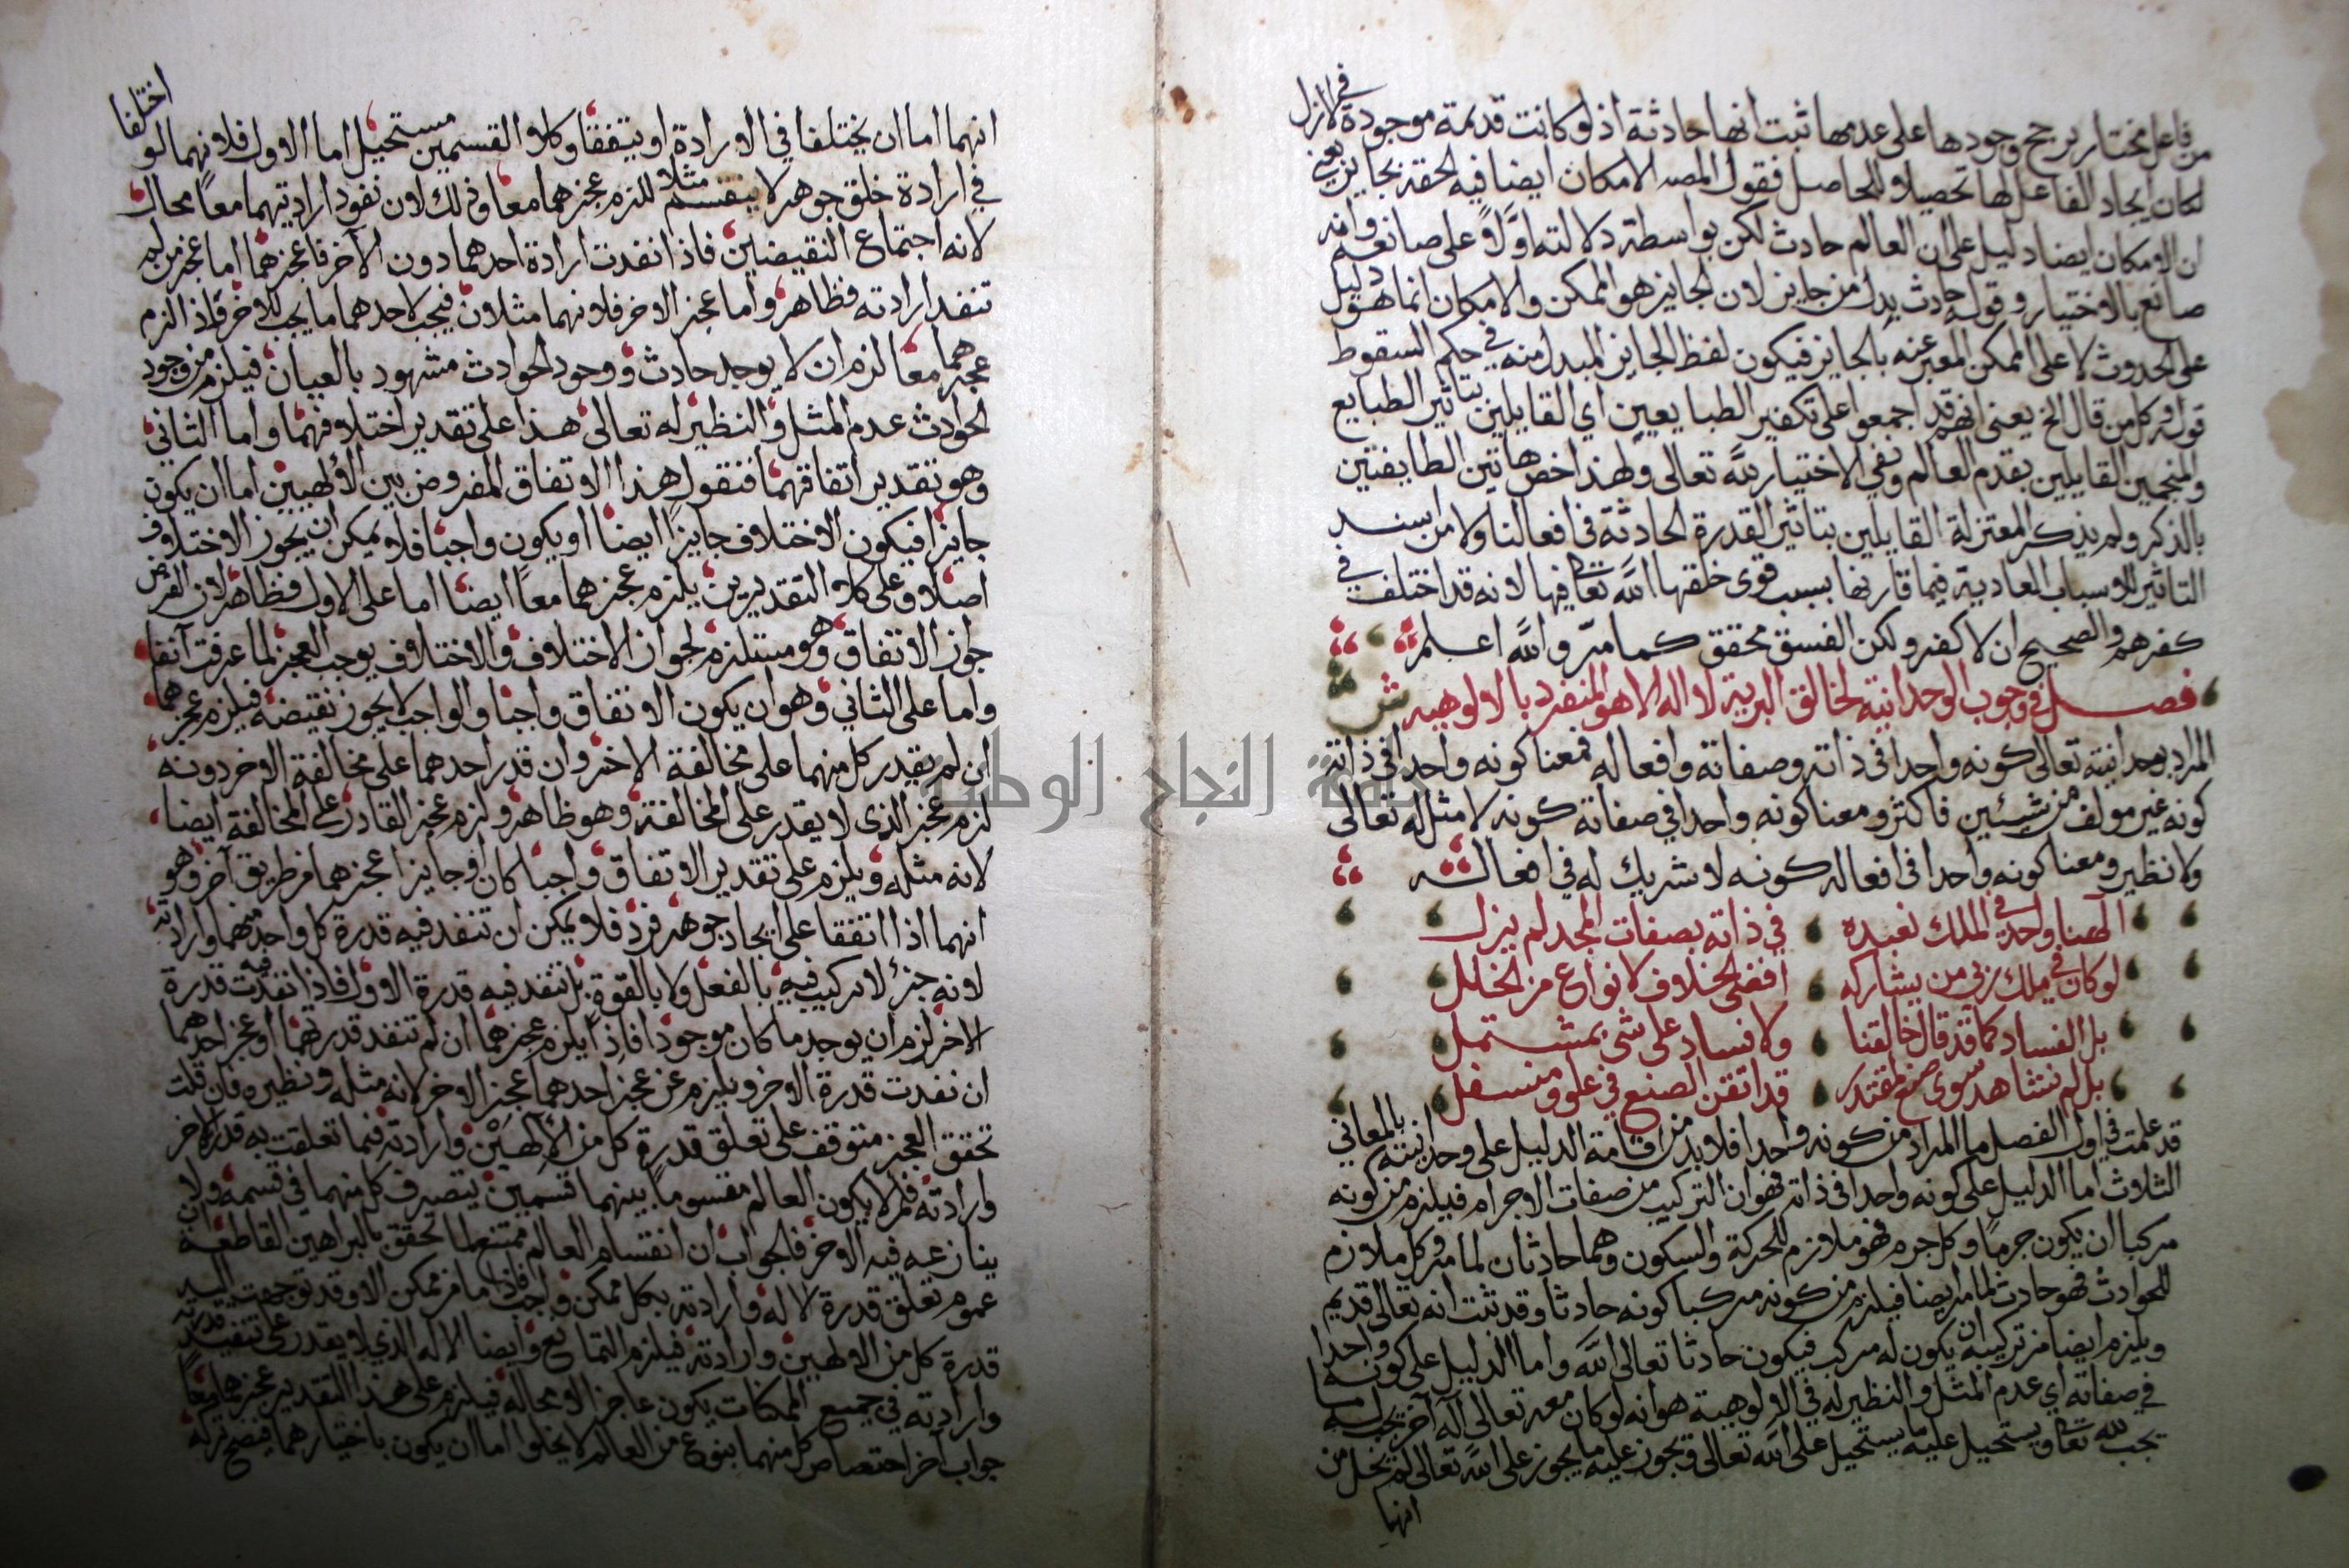 من فاعل مختار يرجح وجودها على عدمها ثبت انها حادثة اذ لو كانت قديمة موجودة في الازل
لكان ايجاد الفاعل لها تحصيلا للحاصل فقول المصـ الامكان ايضا فيه لحقته بجايز يعني
ان الامكان ايضا دليل على ان العالم حادث لكن بواسطة دلالته اوَّلاً على صانعه وانه
صانع بالاختيار وقوله حادث بدل من جايز لان الجايز هو الممكن والامكان انما هو دليل
على الحدوث لا على الممكن المعبر عنه بالجايز فيكون لفظ الجايز المبدل منه في حكم السقوط
قوله وكل من قال الخ يعنى انهم قد اجمعوا على تكفير الطبايعيين اي القايلين بتاثير الطبايع
والمنجمين القايلين بقدم العالم ونفي الاختيار للّه تعالى ولهذا خص هاتين الطايفتين
بالذكر ولم يذكر المعتزلة القايلين بتاثير القدرة الحادثة في افعالنا ولا من اسند
التاثير للاسباب العادية فيما قارنها بسبب قوى خلقها اللّه تعا فيها لانه قد اختلف في
كفرهم والصحيح ان لا كفر ولكن الفسق محقق كما مرّ واللّه اعلم
فصل في وجوب الوحدانية لخالق البرية لا اله الا هو المنفرد بالالوهيه ش
المراد بوحدانيته تعالى كونه واحدا في ذاته وصفاته وافعاله فمعنا كونه واحدا في ذاته
كونه غير مولف من شيئين فاكثر ومعنا كونه واحدا في صفاته كونه لا مثل له تعالى
ولا نظير ومعنا كونه واحدا في افعاله كونه لا شريك له في افعاله
الهنا واحد في الملك نعبده في ذاته بصفات المجد لم يزل
لو كان في ملك ربي من يشاركه افضى الخلاف لانواع من الخلل
بل الفساد كما قد قال خالقنا ولا فساد على شي بمشتمل
بل لم نشاهد سوى صنع مقتدر قد اتقن الصنع في علو ومنسفل
قد علمت في اول الفصل ما المراد من كونه واحدا فلا بد من اقامة الدليل على وحدانيته بالمعاني
الثلاث اما الدليل على كونه واحدا في ذاته فهو ان التركيب من صفات الاجرام فيلزم من كونه
مركبا ان يكون جرما وكل جرم فهو ملازم للحركة والسكون وهما حادثان لما مر وكل ملازم
للحوادث فهو حادث لما مر ايضا فيلزم من كونه مركبا كونه حادثا وقد ثبت انه تعالى قديم
ويلزم ايضا من تركيبه ان يكون له مركب فيكون حادثا تعالى اللّه واما الدليل على كونه واحدا
في صفاته اي عدم المثل والنظير له في الالوهية هو انه لو كان معه تعالى اله آخر يجب له ما
يجب للّه تعا ويستحيل عليه ما يستحيل على اللّه تعالى ويجوز عليه ما يجوز على اللّه تعالى لم يخل من
انهما
انهما اما ان يختلفا في الارادة او يتفقا وكلا القسمين مستحيل اما الاول فلانهما لو اختلفا
في ارادة خلق جوهر لا ينقسم مثلا للزم عجزهما معا وذلك لان نفوذ ارادتهما معاً محال
لانه اجتماع النقيضين فاذا نفدت ارادة احدهما دون الآخر فاعجزهما اما عجز من لم
تنفد ارادته فظاهر واما عجز الاخر فلانهما مثلان فيجب لاحدهما ما يجب للاخر فاذا لزم
عجزهما معا لزم ان لا يوجد حادث ووجود الحوادث مشهود بالعيان فيلزم من وجود
الحوادث عدم المثل والنظير له تعالى هذا على تقدير اختلافهما واما الثاني
وهو تقدير اتفاقهما فنقول هذا الاتفاق المفروض بين الالهيين اما ان يكون
جايزا فيكون الاختلاف جايزاً ايضا او يكون واجبا فلا يمكن ان يجوز الاختلاف
اصلا وعلى كلا التقديرين يلزم عجزهما معاً ايضا اما على الاول فظاهر لان الفرض
جواز الاتفاق وهو مستلزم لجواز الاختلاف والاختلاف يوجب العجز لما عرفت آنفا
واما على الثاني وهو ان يكون الاتفاق واجبا والواجب لا يجوز نقيضه فيلزم عجزهما
ان لم يقدر كل منهما على مخالفة الاخر وان قدر احدهما على مخالفة الاخر دونه
لزم عجز الذي لا يقدر على المخالفة وهو ظاهر ولزم عجز القادر على المخالفة ايضا
لانه مثله ويلزم على تقدير الاتفاق واجبا كان او جايزا عجزهما من طريق آخر وهو
انهما اذا اتفقا على ايجاد جوهر فرد فلا يمكن ان تنفد فيه قدرة كل واحد منهما وارادته
لانه جزء لا تركيب فيه بالفعل ولا بالقوة بل تنفد فيه قدرة الاول فاذا نفدت فيه قدرة
الاخر لزم ان يوجد ما كان موجودا فاذاً يلزم عجزهما ان لم تنفد قدرتهما او عجز احدهما
ان نفدت قدرة الاخر ويلزم عن عجز احدهما عجز الاخر لانه مثله ونظيره فان قلت
تحقق العجز متوقف على تعلق قدرة كل من الالهين وارادته فيما تعلقت به قدرة الاخر
وارادته فلم لا يكون العالم مقسوماً بينهما قسمين يتصرف كل منهما في قسمه ولا
ينازعه فيه الاخر فالجواب ان انقسام العالم ممتنع لما تحقق بالبراهين القاطعة ان
عموم تعلق قدرة الاله وارادته بكل ممكن واجب فاذا ما من ممكن الا وقد توجهت اليه
قدرة كل من الالهين وارادته فيلزم التمانع وايضا الاله الذي لا يقدر على تنفيد قدرته
وارادته في جميع الممكنات يكون عاجزا لا محالة فيلزم على هذا التقدير عجزهما معاً
جواب آخر اختصاص كل منهما بنوع من العالم لا يخلوا اما ان يكون باختيارهما فيصح تركه
النجاح الوطنية